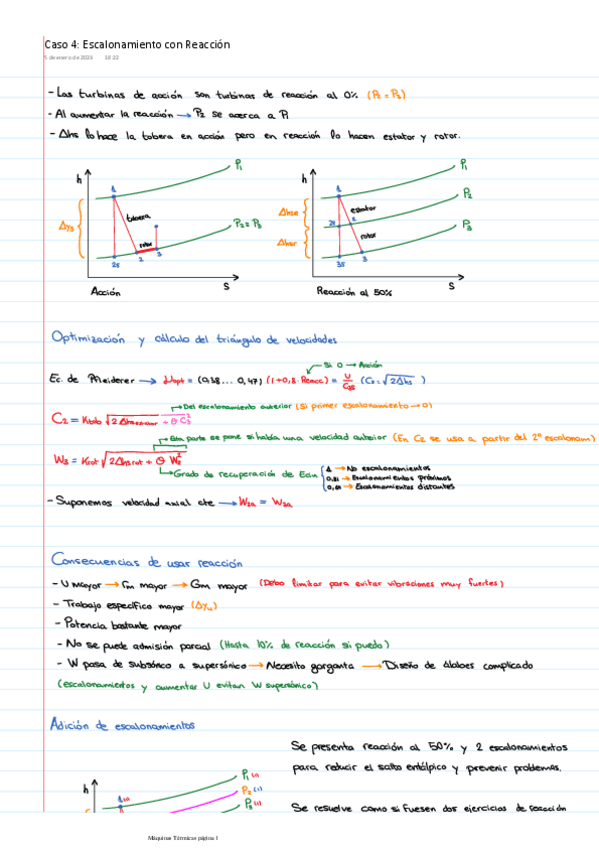 Caso 4: Escalonamiento con Reacción
5 de enero de 2023 18:22
- Las turbinas de acción son turbinas de reacción al 0% (P2 = P3)
- Al aumentar la reacción → P2 se acerca a P1
- Δhs lo hace la tobera en acción pero en reacción lo hacen estator y rotor.
h
P1
1
tobera
P2 = P3
rotor
2s
2
3
S
Acción
h
P1
1
P2
Δhse
estator
2s
2
P3
Δhsr
rotor
3s
3
S
Reacción al 50%
Optimización y cálculo del triángulo de velocidades
Si 0 → Acción
Ec. de Pfleiderer → μopt = (0,38... 0,47) (1+0,8·Reacc) =
→ Del escalonamiento anterior (Si primer escalonamiento → 0)
→ Esta parte se pone si había una velocidad anterior (En C2 se usa a partir del 2º escalonam)
→ Grado de recuperación de Ecin
1 → No escalonamientos
→ Escalonamientos próximos
→ Escalonamientos distantes
- Suponemos velocidad axial cte → W2a = W3a
Consecuencias de usar reacción
- U mayor → rm mayor → Gm mayor (Debo limitar para evitar vibraciones muy fuertes)
- Trabajo específico mayor
- Potencia bastante mayor
- No se puede admisión parcial (Hasta 10% de reacción si puedo)
- W pasa de subsónico a supersónico → Necesito garganta → Diseño de álabes complicado
(escalonamientos y aumentar U evitan W supersónico)
Adición de escalonamientos
Se presenta reacción al 50% y 2 escalonamientos
para reducir el salto entálpico y prevenir problemas.
h
P1 (1)
P2 (1)
P3 (1)
Se resuelve como si fuesen dos ejercicios de reacción
Máquinas Térmicas página 1